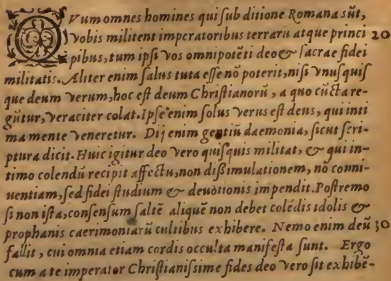 Vum omnes homines qui sub ditione Romana sūt,
vobis militent imperatoribus terrarū atque princi 20
pibus, tum ipsi vos omnipotēti deo & sacræ fidei
militatis. Aliter enim salus tuta esse nō poterit, nisi vnusquis
que deum verum, hoc est deum Christianorū, a quo cūcta re-
gūtur, veraciter colat. Ipse enim solus verus est deus, qui inti
ma mente veneretur. Dij enim gentiū daemonia, sicut scri-
ptura dicit. Huic igitur deo vero quisquis militat, & qui in-
timo colendū recipit affectu, non dissimulationem, nō conni-
uentiam, sed fidei studium & deuotionis impendit. Postremo
si non ista, consensum saltē aliquē non debet colēdis idolis &
prophanis caerimoniarū cultibus exhibere. Nemo enim deū 30
fallit, cui omnia etiam cordis occulta manifesta sunt. Ergo
cum a te imperator Christianissime fides deo vero sit exhibē-